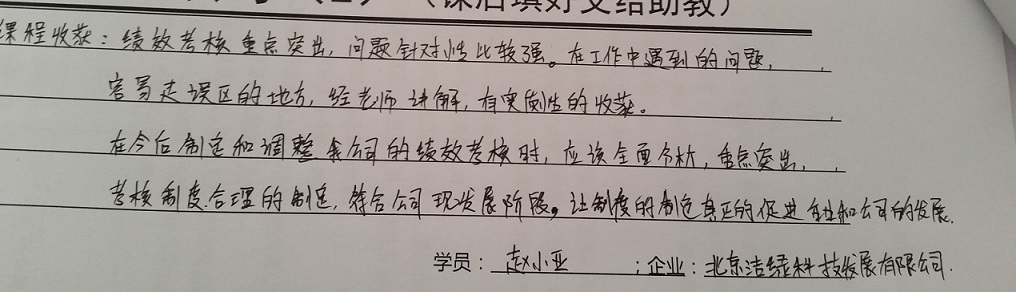 （课后填好交给助教）
课程收获：绩效考核重点突出，问题针对性比较强。在工作中遇到的问题，
容易走误区的地方，经老师讲解，有实质性的收获。
在今后制定和调整我公司的绩效考核时，应该全面分析，重点突出，
考核制度合理的制定，符合公司现发展阶段，让制度的制定真正的促进和公司的发展.
学员：赵小亚；企业：北京洁绿科技发展有限公司.